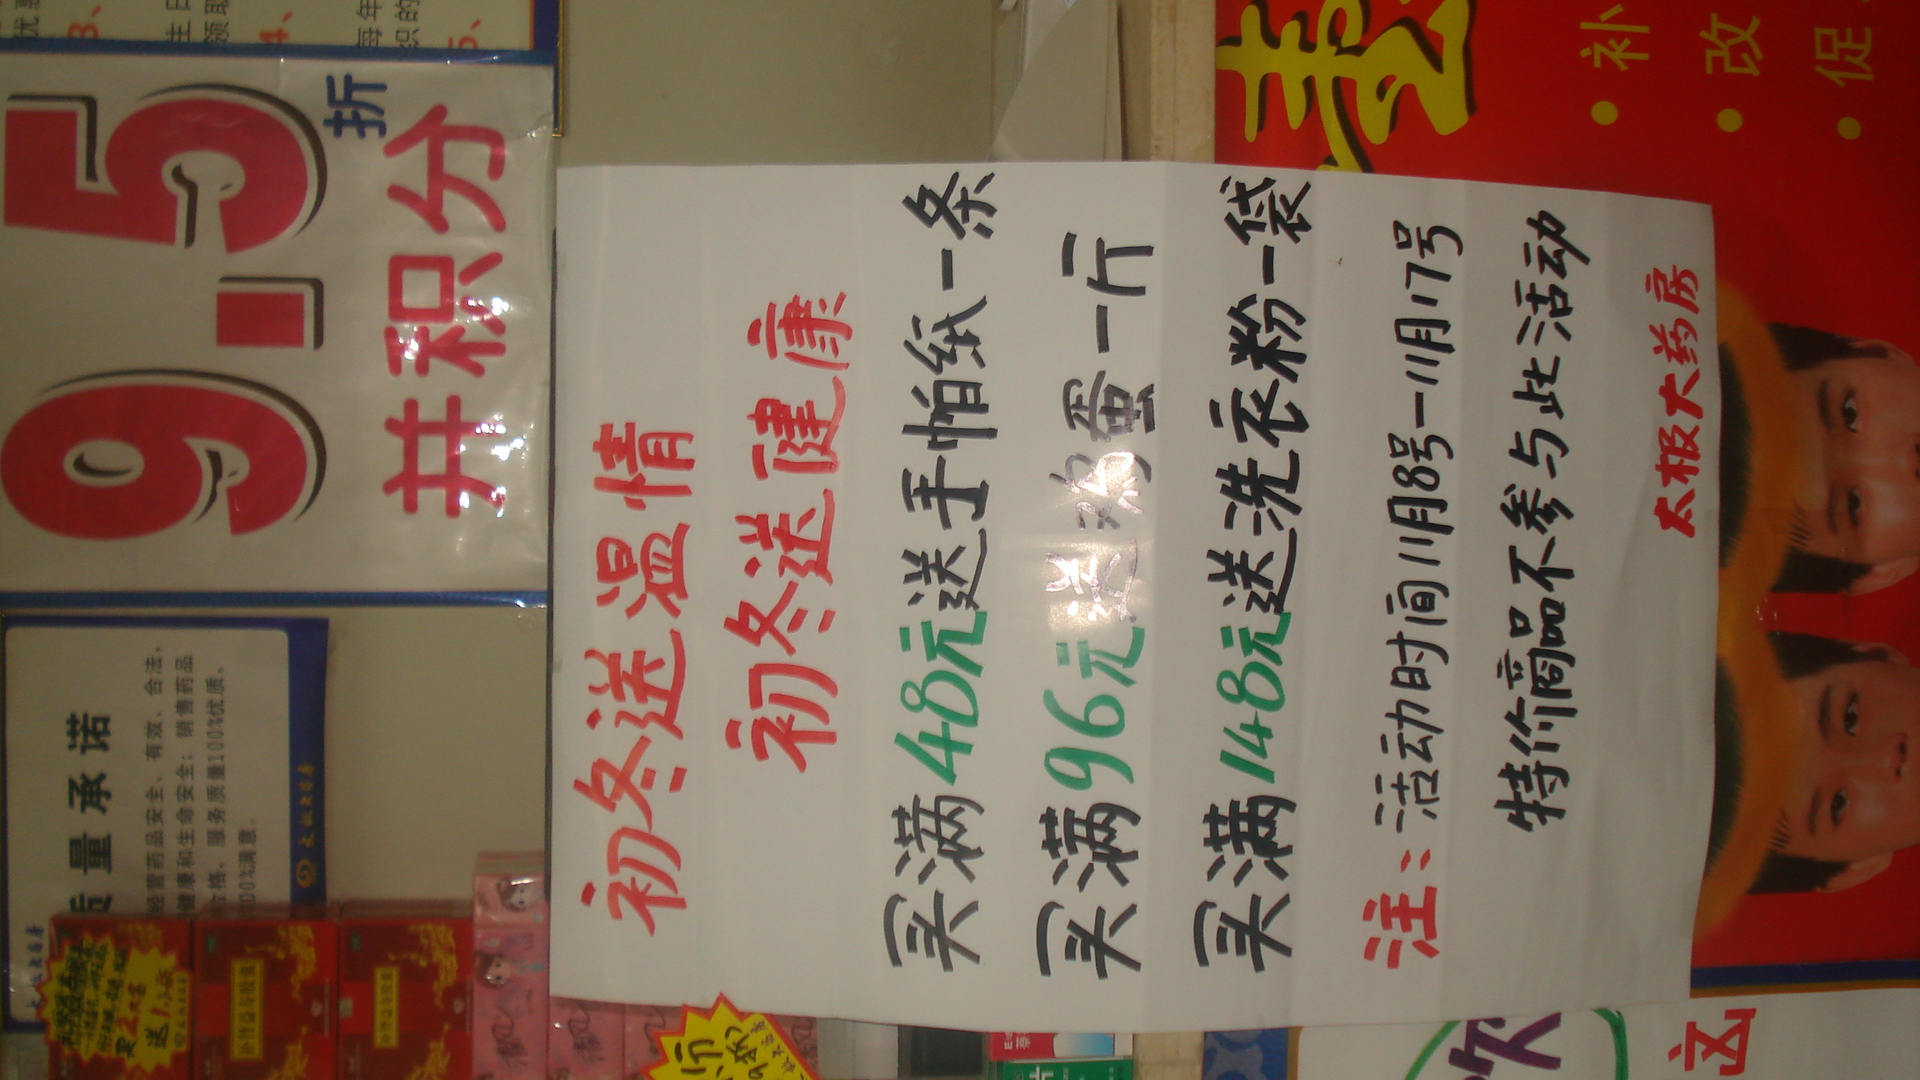 初冬送温情
初冬送健康
买满48元送手帕纸一条
买满96元送鸡蛋一斤
买满148元送洗衣粉一袋
注：活动时间11月8号—11月17号
特价商品不参与此活动
太极大药房
9.5折
共积分
质量承诺
经营药品安全、有效、合法、
健康和生命安全；销售药品
价格、服务质量100%优质、
100%满意。
太极大药房
补
改
促
买2大盒
送1小盒